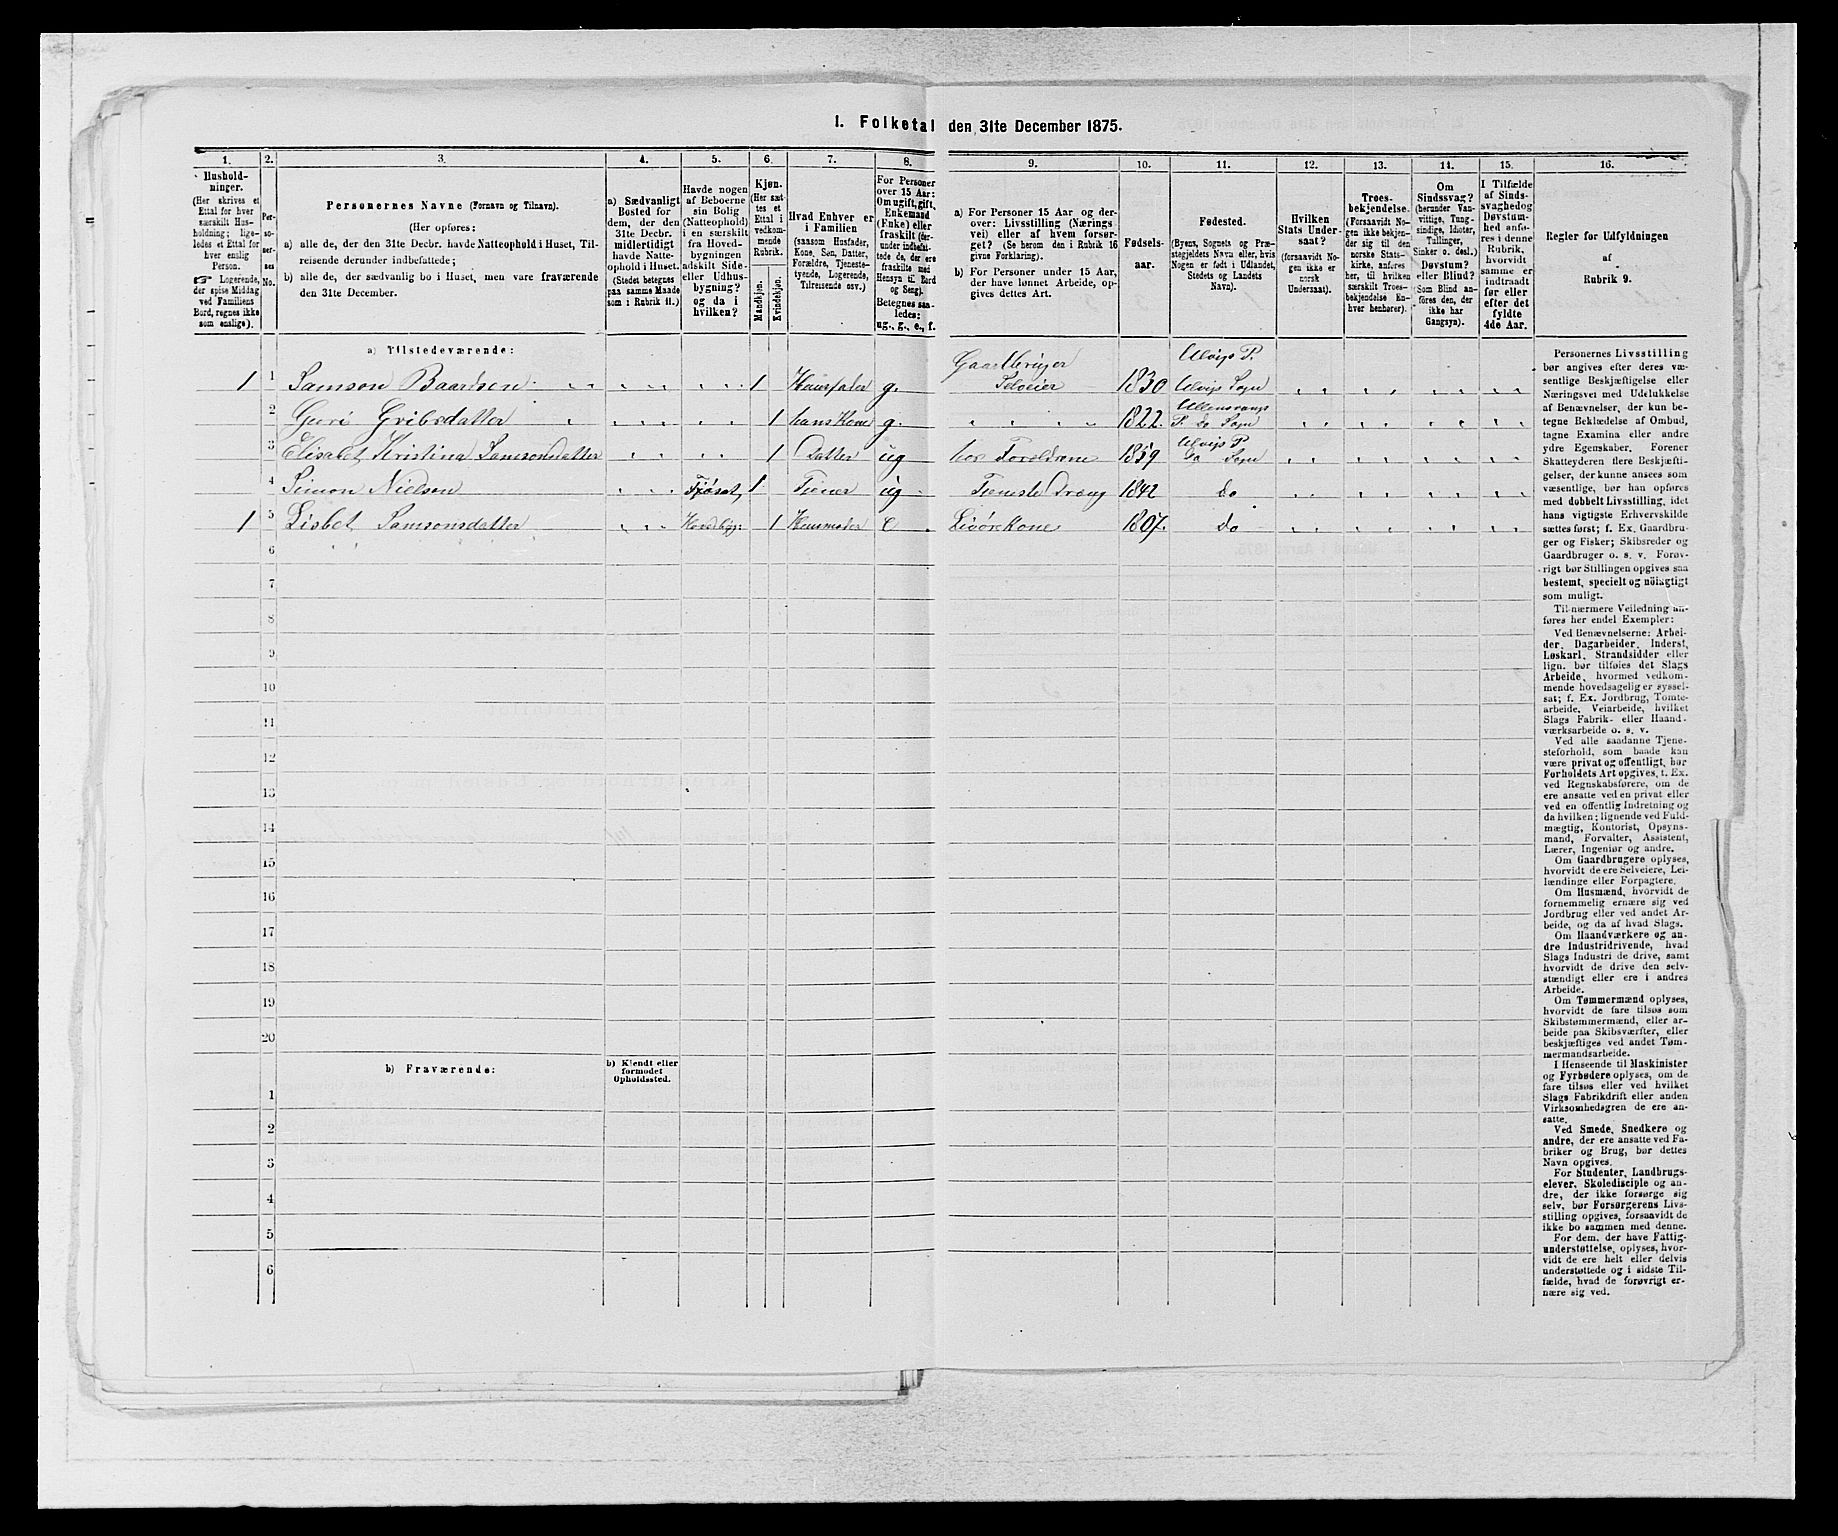 I. Folketal den 31te December 1875.
1.
2.
3.
4.
5.
6.
7.
8.
9.
10.
11.
12.
13.
14.
15.
16.
Hushold-
ninger.
(Her skrives et
Ettal for hver
særskilt Hus-
holdning; lige-
ledes et Ettal for
hver enslig
Person.
☞ Logerende,
der spise Middag
ved Familiens
Bord, regnes ikke
som enslige).
Per-
so-
ner-
nes
No.
Personernes Navne (Fornavn og Tilnavn).
(Her opføres:
a) alle de, der den 31te Decbr. havde Natteophold i Huset, Til-
reisende derunder indbefattede;
b) alle de, der sædvanlig bo i Huset, men vare fraværende
den 31te December.
a) Sædvanligt
Bosted for
dem, der den
31te Decbr.
midlertidigt
havde Natte-
ophold i Huset.
(Stedet betegnes
paa samme Maade
som i Rubrik 11.)
Havde nogen
af Beboerne
sin Bolig
(Natteophold)
i en særskilt
fra Hoved-
bygningen
adskilt Side-
eller Udhus-
bygning?
og da i
hvilken?
Kjøn.
(Her sæt-
tes et
Ettal i
vedkom-
mende
Rubrik.
Mandkjøn.
Kvindekjøn.
Hvad Enhver er
i Familien
(saasom Husfader,
Kone, Søn, Datter,
Forældre, Tjeneste-
tyende, Logerende,
Tilreisende osv.)
For Personer
over 15 Aar:
Om ugift, gift,
Enkemand
(Enke) eller
fraskilt (der-
under indbefat-
tede de, der ere
fraskilte med
Hensyn til Bord
og Seng).
Betegnes saa-
ledes:
ug., g., e., f.
a) For Personer 15 Aar og der-
over: Livsstilling (Nærings-
vei) eller af hvem forsør-
get? (Se herom den i Rubrik 16
givne Forklaring).
b) For Personer under 15 Aar,
der have lønnet Arbeide, op-
gives dettes Art.
Fødsels-
aar.
Fødested.
(Byens, Sognets og Præ-
stegjeldets Navn eller, hvis
Nogen er født i Udlandet,
Stedets og Landets
Navn).
Hvilken
Stats Under-
saat?
(forsaavidt No-
gen ikke er
norsk
Undersaat).
Troes-
bekjendelse.
(Forsaavidt No-
gen ikke bekjen-
der sig til den
norske Stats-
kirke, anføres
her, til hvilken
særskilt Troes-
bekjendelse En-
hver henhører).
Om
Sindssvag?
(herunder Van-
vittige, Tung-
sindige, Idioter,
Tullinger,
Sinker o. desl.)
Døvstum?
eller Blind?
(Som Blind an-
føres den, der
ikke har
Gangsyn).
I Tilfælde
af Sinds-
svaghed og
Døvstum-
hed anfø-
res i denne
Rubrik,
hvorvidt
samme er
indtraadt
før eller
efter det
fyldte
4de Aar.
Regler for Udfyldningen
af
Rubrik 9.
a) Tilstedeværende:
1 1 Samson Baardsen 1 Huusfader g. Gaardbruger Selveier 1830 Ulvigs P. Ulvigs Sogn
2 Guri 1 hans Kone g. 1822. Ullensvangs P. do Sogn
3 Elisabet Kristina Samsonsdatter 1 Datter ug hos Foreldrene 1859 Ulvigs P. do Sogn
4 Simon Nielsen 1 Tjener ug Tjeneste Dræng 1842 do
1 5 Lisbet Samsonsdatter 1 Huusmoder e 1807. do
6
7
8
9
10
11
12
13
14
15
16
17
18
19
20
b) Fraværende:
b) Kjendt eller
formodet
Opholdssted.
1
2
3
4
5
6
Personernes Livsstilling
bør angives efter deres væ-
sentlige Beskjæftigelse eller
Næringsvei med Udelukkelse
af Benævnelser, der kun be-
tegne Beklædelse af Ombud,
tagne Examina eller andre
ydre Egenskaber. Forener
Skatteyderen flere Beskjæfti-
gelser, der kunne ansees som
væsentlige, bør han opføres
med dobbelt Livsstilling, idet
hans vigtigste Erhvervskilde
sættes først; f. Ex. Gaardbru-
ger og Fisker; Skibsreder og
Gaardbruger o. s. v. Forøv-
rigt bør Stillingen opgives saa
bestemt, specielt og nöiagtigt
som muligt.
Til nærmere Veiledning an-
føres her endel Exempler:
Ved Benævnelserne: Arbei-
der, Dagarbeider, Inderst,
Løskarl, Strandsidder eller
lign. bør tilføies det Slags
Arbeide, hvormed vedkom-
mende hovedsagelig er syssel-
sat; f. Ex. Jordbrug, Tomte-
arbeide, Veiarbeide, hvilket
Slags Fabrik- eller Haand-
værksarbeide o. s. v.
Ved alle saadanne Tjene-
steforhold, som baade kan
være privat og offentligt, bør
Forholdets Art opgives, t. Ex.
ved Regnskabsførere, om de
ere ansatte ved en privat eller
ved en offentlig Indretning og
da hvilken; lignende ved Fuld-
mægtig, Kontorist, Opsyns-
mand, Forvalter, Assistent,
Lærer, Ingeniør og andre.
Om Gaardbrugere oplyses,
hvorvidt de ere Selveiere, Lei-
lændinge eller Forpagtere.
Om Husmænd, hvorvidt de
fornemmelig ernære sig ved
Jordbrug eller ved andet Ar-
beide, og da af hvad Slags.
Om Haandværkere og an-
dre Industridrivende, hvad
Slags Industri de drive, samt
hvorvidt de drive den selv-
stændigt eller ere i andres
Arbeide.
Om Tømmermænd oplyses,
hvorvidt de fare tilsøs som
Skibstømmermænd, eller ar-
beide paa Skibsværfter, eller
beskjæftiges ved andet Tøm-
mermandsarbeide.
I Henseende til Maskinister
og Fyrbødere oplyses, om de
fare tilsøs eller ved hvilket
Slags Fabrikdrift eller anden
Virksomhedsgren de ere an-
satte.
Ved Smede, Snedkere og
andre, der ere ansatte ved Fa-
briker og Brug, bør dettes
Navn opgives.
For Studenter, Landbrugs-
elever, Skoledisciple og an-
dre, der ikke forsørge sig
selv, bør Forsørgerens Livs-
stilling opgives, forsaavidt de
ikke bo sammen med denne.
For dem, der have Fattig-
understøttelse, oplyses, hvor-
vidt de ere helt eller delvis
understøttede og i sidste Til-
fælde, hvad de forøvrigt er-
nære sig ved.